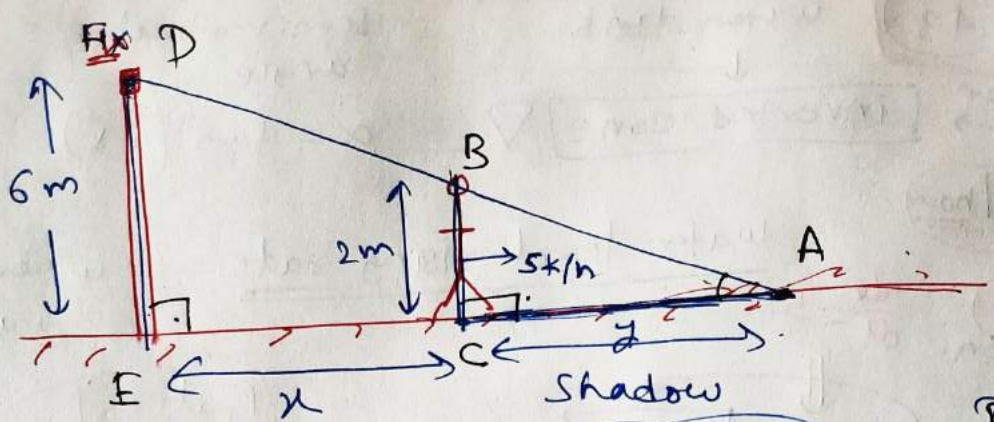 Fix D
6 m
B
2m
5k/h
A
E
x
C
y
Shadow